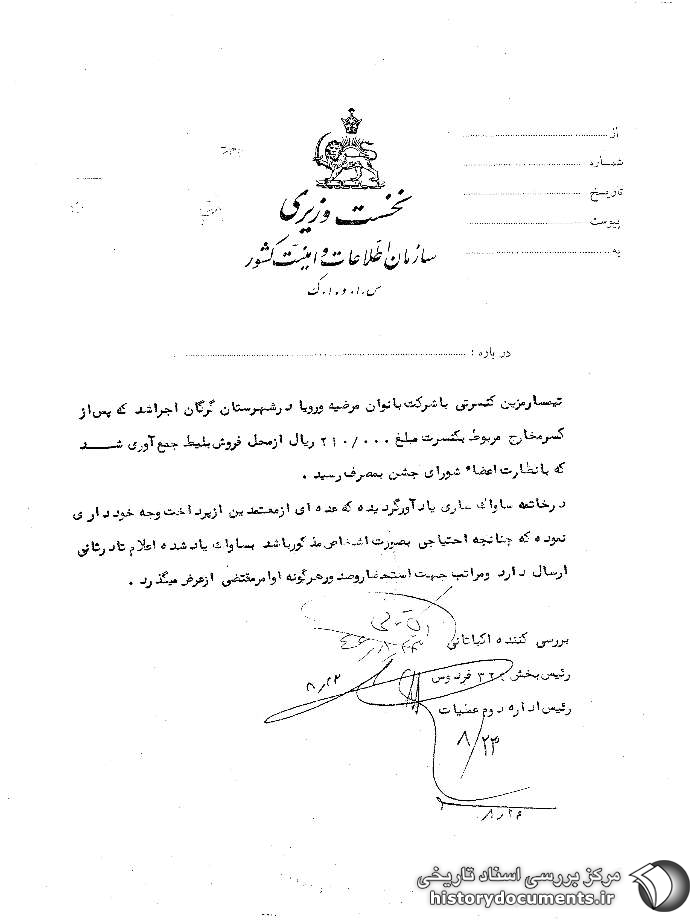 از
شماره
تاریخ
پیوست
به
نخست وزیری
سازمان اطلاعات و امنیت کشور
س.ا.و.ا.ک
درباره :
تیمسار مزین کنسرتی با شرکت بانوان مرضیه و رویا در شهرستان گرگان اجرا شد که پس از
کسر مخارج مربوط بکنسرت مبلغ ۲۱۰/۰۰۰ ریال از محل فروش بلیط جمع آوری شد
که با نظارت اعضاء شورای جشن بمصرف رسید .
در خاتمه ساواك ساری یاد آور گردیده که عده ای از معتمدین از پرداخت وجه خود داری
نموده که چنانچه احتیاجی بصورت اشخاص مذکور باشد بساواك یاد شده اعلام تا در ثانی
ارسال دارد ومراتب جهت استحضار وصدور هرگونه اوامر مقتضی از عرض میگذرد .
بررسی کننده اکباتانی
رئیس بخش ۳۲۰ فردوس ۸/۲۳
رئیس اداره دوم عملیات
۸/۲۳
۸/۲۴
مرکز بررسی اسناد تاریخی
historydocuments.ir